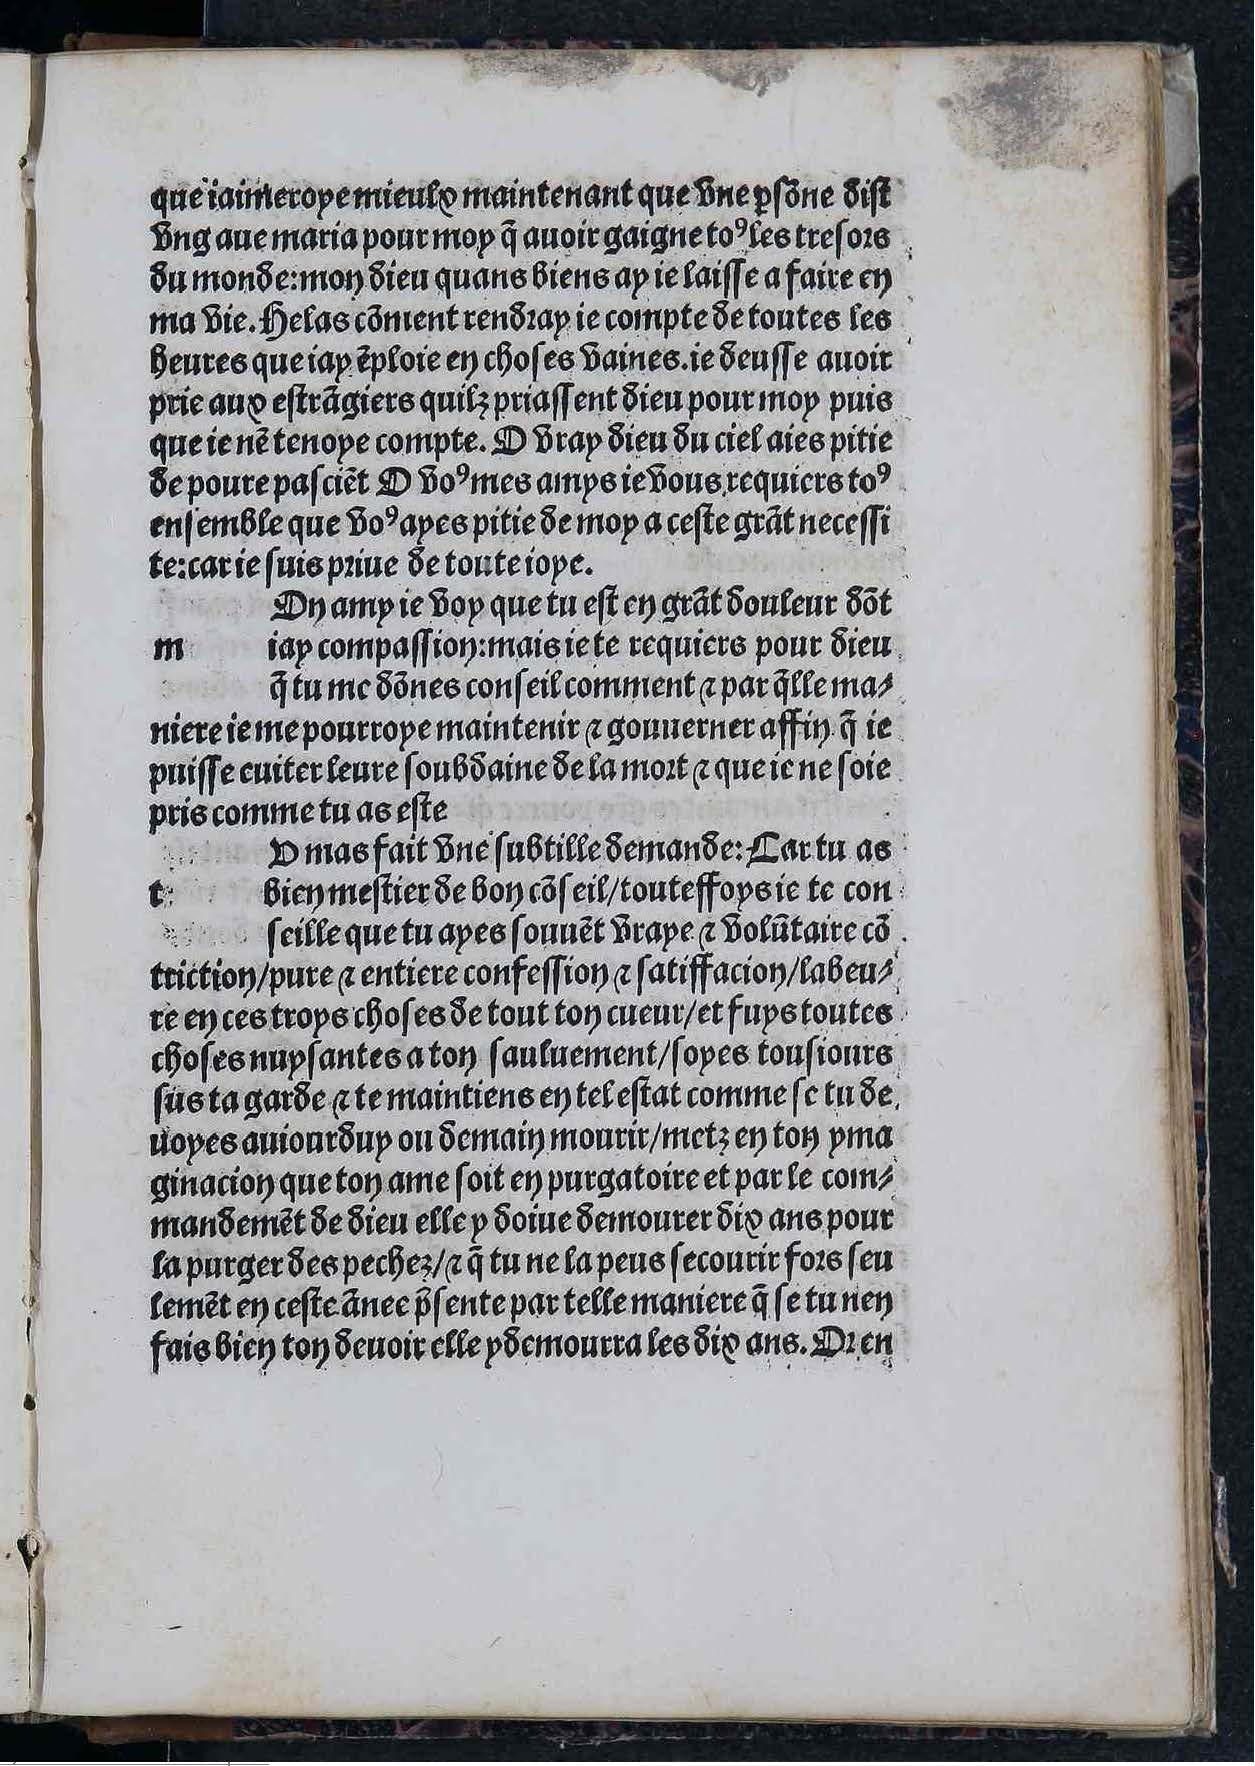 que iaimeroye mieulx maintenant que vne ꝑsōne dist
vng aue maria pour moy q̄ auoir gaigne toꝰ les tresors
du monde: mon dieu quans biens ay ie laisse a faire en
ma vie. Helas cōment rendray ie compte de toutes les
heures que iay ēploie en choses vaines. ie deusse auoir
prie aux estrāgiers quilz priassent dieu pour moy puis
que ie nē tenoye compte. O vray dieu du ciel aies pitie
de poure pasciēt O voꝰ mes amys ie vous requiers toꝰ
ensemble que voꝰ ayes pitie de moy a ceste grāt necessi
te: car ie suis priue de toute ioye.
On amy ie voy que tu est en grāt douleur dōt
m iay compassion: mais ie te requiers pour dieu
q̄ tu me dōnes conseil comment ⁊ par q̄lle ma⸗
niere ie me pourroye maintenir ⁊ gouuerner affin q̄ ie
puisse euiter leure soubdaine de la mort ⁊ que ie ne soie
pris comme tu as este
V mas fait vne subtille demande: Car tu as
t bien mestier de bon cōseil/touteffoys ie te con
seille que tu ayes souuēt vraye ⁊ volūtaire cō
triction/pure ⁊ entiere confession ⁊ satiffacion/labeu⸗
re en ces troys choses de tout ton cueur/et fuys toutes
choses nuysantes a ton sauluement/soyes tousiours
sus ta garde ⁊ te maintiens en tel estat comme se tu de
uoyes auiourduy ou demain mourir/metz en ton yma
ginacion que ton ame soit en purgatoire et par le com⸗
mandemēt de dieu elle y doiue demourer dix ans pour
la purger des pechez/⁊ q̄ tu ne la peus secourir fors seu
lemēt en ceste ānee p̄sente par telle maniere q̄ se tu nen
fais bien ton deuoir elle y demourra les dix ans. Or en